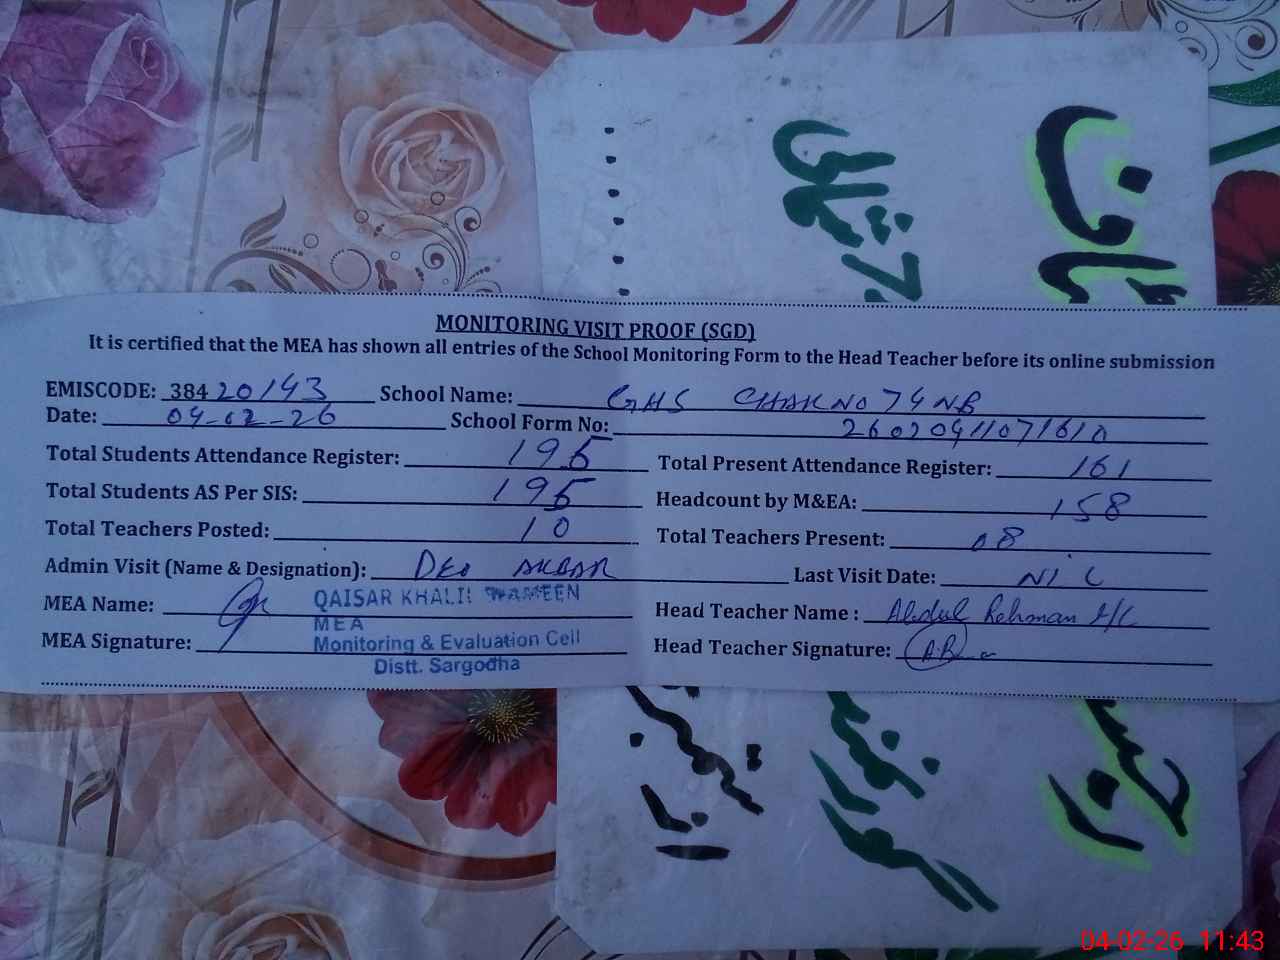 MONITORING VISIT PROOF (SGD)
It is certified that the MEA has shown all entries of the School Monitoring Form to the Head Teacher before its online submission
EMISCODE: 38420143 School Name: GHS CHAK NO 74 NB
Date: 04-02-26 School Form No: 2602041107161
Total Students Attendance Register: 195 Total Present Attendance Register: 161
Total Students AS Per SIS: 195 Headcount by M&EA: 158
Total Teachers Posted: 10 Total Teachers Present: 08
Admin Visit (Name & Designation): DEO AKBAR Last Visit Date: NIL
MEA Name: QAISAR KHALIL Head Teacher Name : Abdul Rehman H/C
MEA
MEA Signature: Monitoring & Evaluation Cell Head Teacher Signature:
Distt. Sargodha
04-02-26 11:43